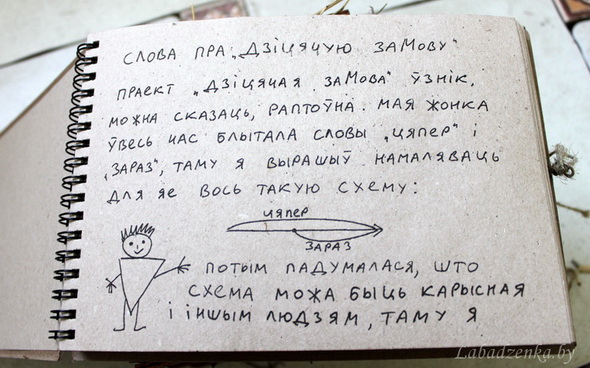 СЛОВА ПРА „ДЗІЦЯЧУЮ ЗАМОВУ"
ПРАЕКТ „ДЗІЦЯЧАЯ ЗАМОВА" ЎЗНІК,
МОЖНА СКАЗАЦЬ, РАПТОЎНА. МАЯ ЖОНКА
ЎВЕСЬ ЧАС БЛЫТАЛА СЛОВЫ „ЦЯПЕР" І
„ЗАРАЗ", ТАМУ Я ВЫРАШЫЎ НАМАЛЯВАЦЬ
ДЛЯ ЯЕ ВОСЬ ТАКУЮ СХЕМУ:
ЦЯПЕР
ЗАРАЗ
ПОТЫМ ПАДУМАЛАСЯ, ШТО
СХЕМА МОЖА БЫЦЬ КАРЫСНАЯ
І ІНШЫМ ЛЮДЗЯМ, ТАМУ Я
Labadzenka.by